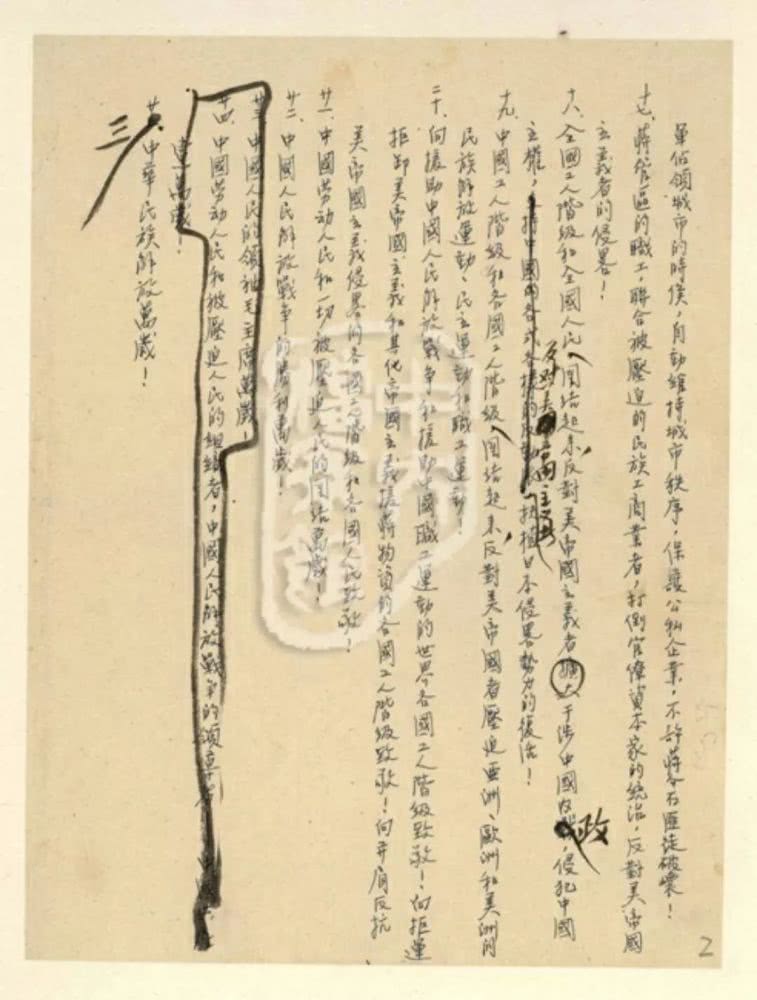 軍佔領城市的時候,自動維持城市秩序,保護公私企業,不許蔣介石匪徒破壞!
十七、蔣管區的職工,聯合被壓迫的民族工商業者,打倒官僚資本家的統治,反對美帝國
主義者的侵畧!
十八、全國工人階級和全國人民,團結起來,反對美帝國主義者擴大干涉中國內政,侵犯中國
主權,反對美帝國主義扶植日本侵畧勢力的復活!
十九、中國工人階級和各國工人階級,團結起來,反對美帝國者壓迫亞洲、歐洲和美洲的
民族解放運動、民主運動和職工運動!
二十、向援助中國人民解放戰爭和援助中國職工運動的世界各國工人階級致敬!向拒運
拒卸美帝國主義和其他帝國主義援蔣物資的各國工人階級致敬!向并肩反抗
美帝國主義侵畧的各國工人階級和各國人民致敬!
廿一、中國勞动人民和一切被壓迫人民的团结萬歲!
廿二、中國人民解放戰争的勝利萬歲!
廿三、中國人民的領袖毛主席萬歲!
廿四、中國勞动人民和被壓迫人民的組織者,中國人民解放戰争的領導者
萬歲!
三、中華民族解放萬歲!
2